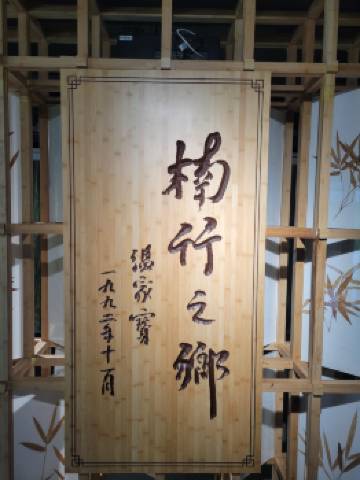 楠竹之鄉
温家寳
一九九二年十一月